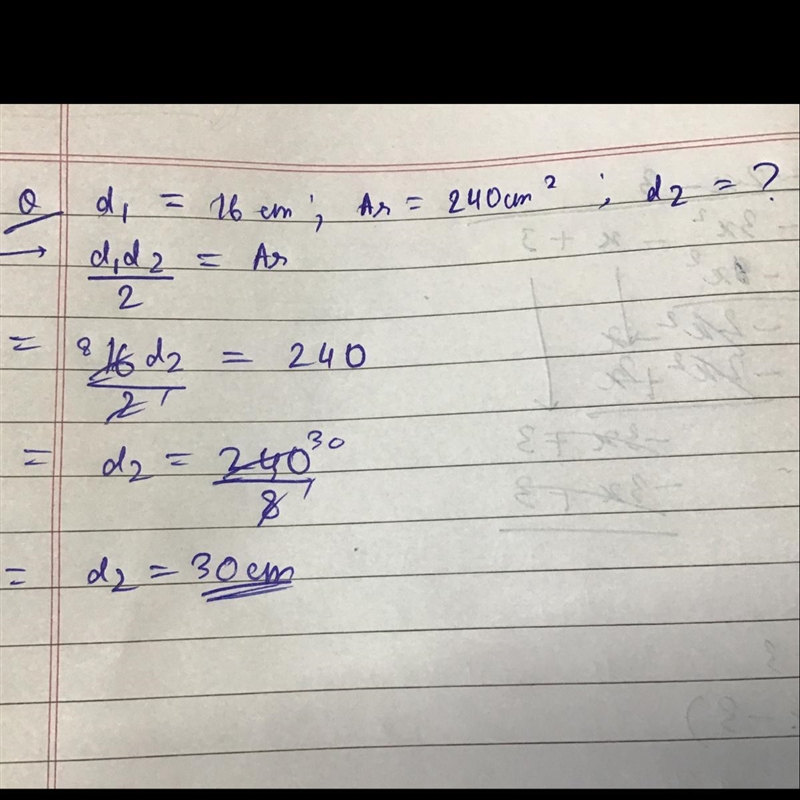 Q d₁ = 16 cm ; Ar = 240cm² ; d₂ = ?
→ d₁d₂/2 = Ar
= 8 16 d₂/2 1 = 240
= d₂ = 240 30/8 1
= d₂ = 30cm